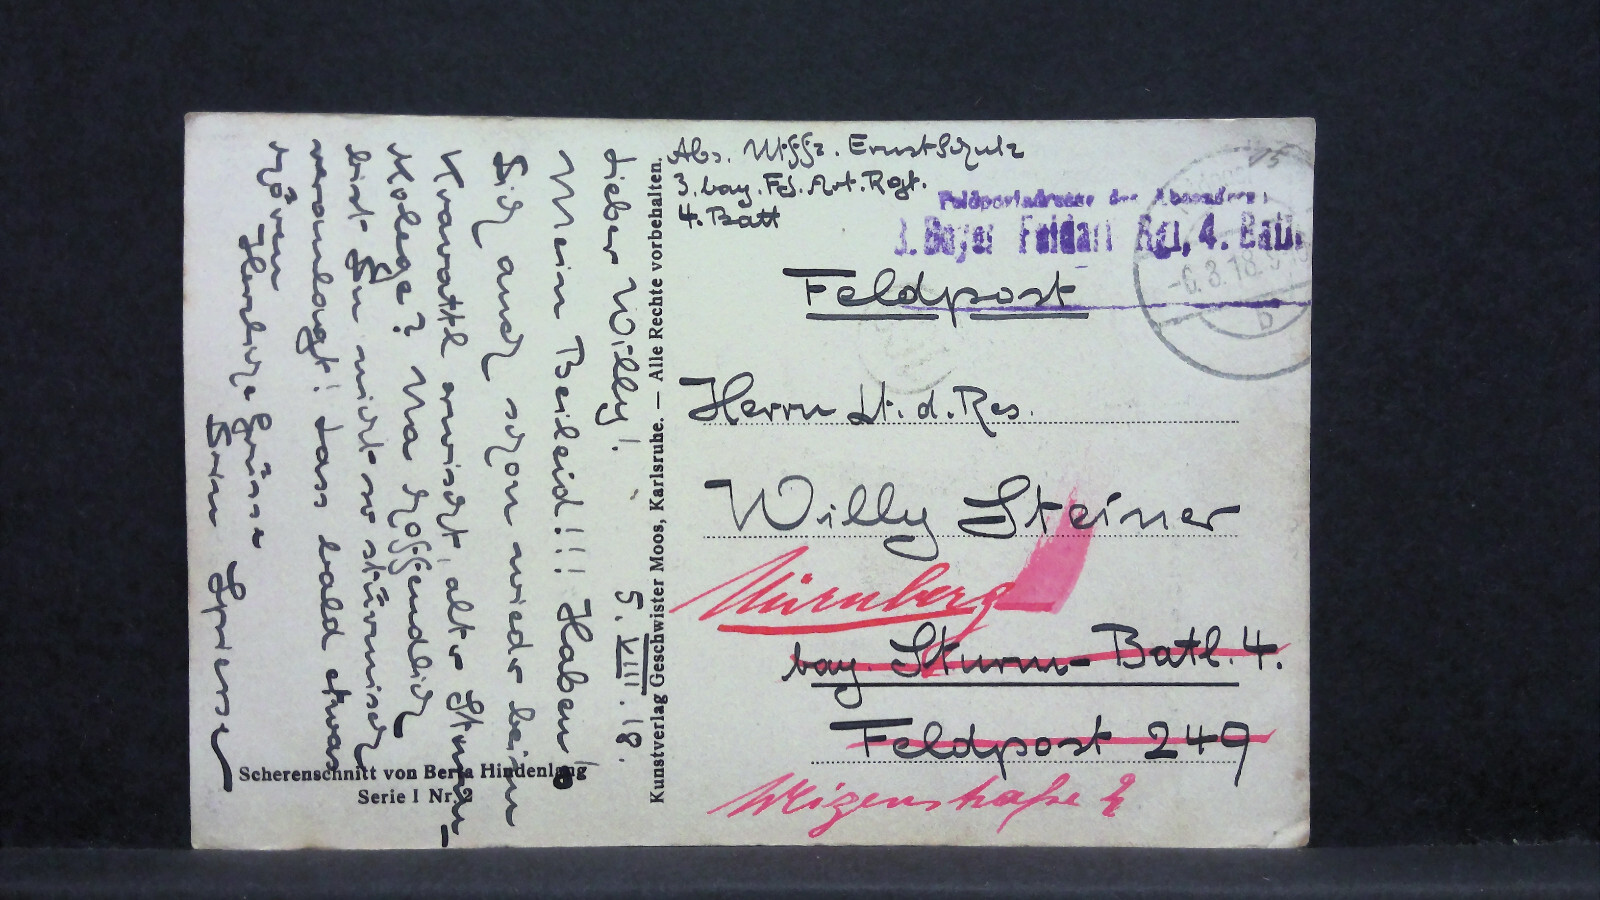 Abs. Utffz. Ernst Schulz
3. bay. Fd. Art. Rgt.
4. Batt
Feldpostadresse des Absenders:
3. Bayer Feldart Rgt, 4. Batt.
-6.8.18.
b
Feldpost
Herrn Lt. d. Res.
Willy Steiner
Nürnberg
bay. Sturm-Batl. 4.
Feldpost 249
Kunstverlag Geschwister Moos, Karlsruhe. — Alle Rechte vorbehalten.
5. VIII. 18.
Lieber Willy!
Mein Beileid!!! Haben's
Dich auch schon wieder beim
Kravattl erwischt, alter Sturm-
kolege? Na hoffendlich
bist Du nicht so stürmisch
veranlagt! Lass bald etwas
hören
Herzliche Grüsse
Dein
Scherenschnitt von Berta Hindenlang
Serie I Nr. 2